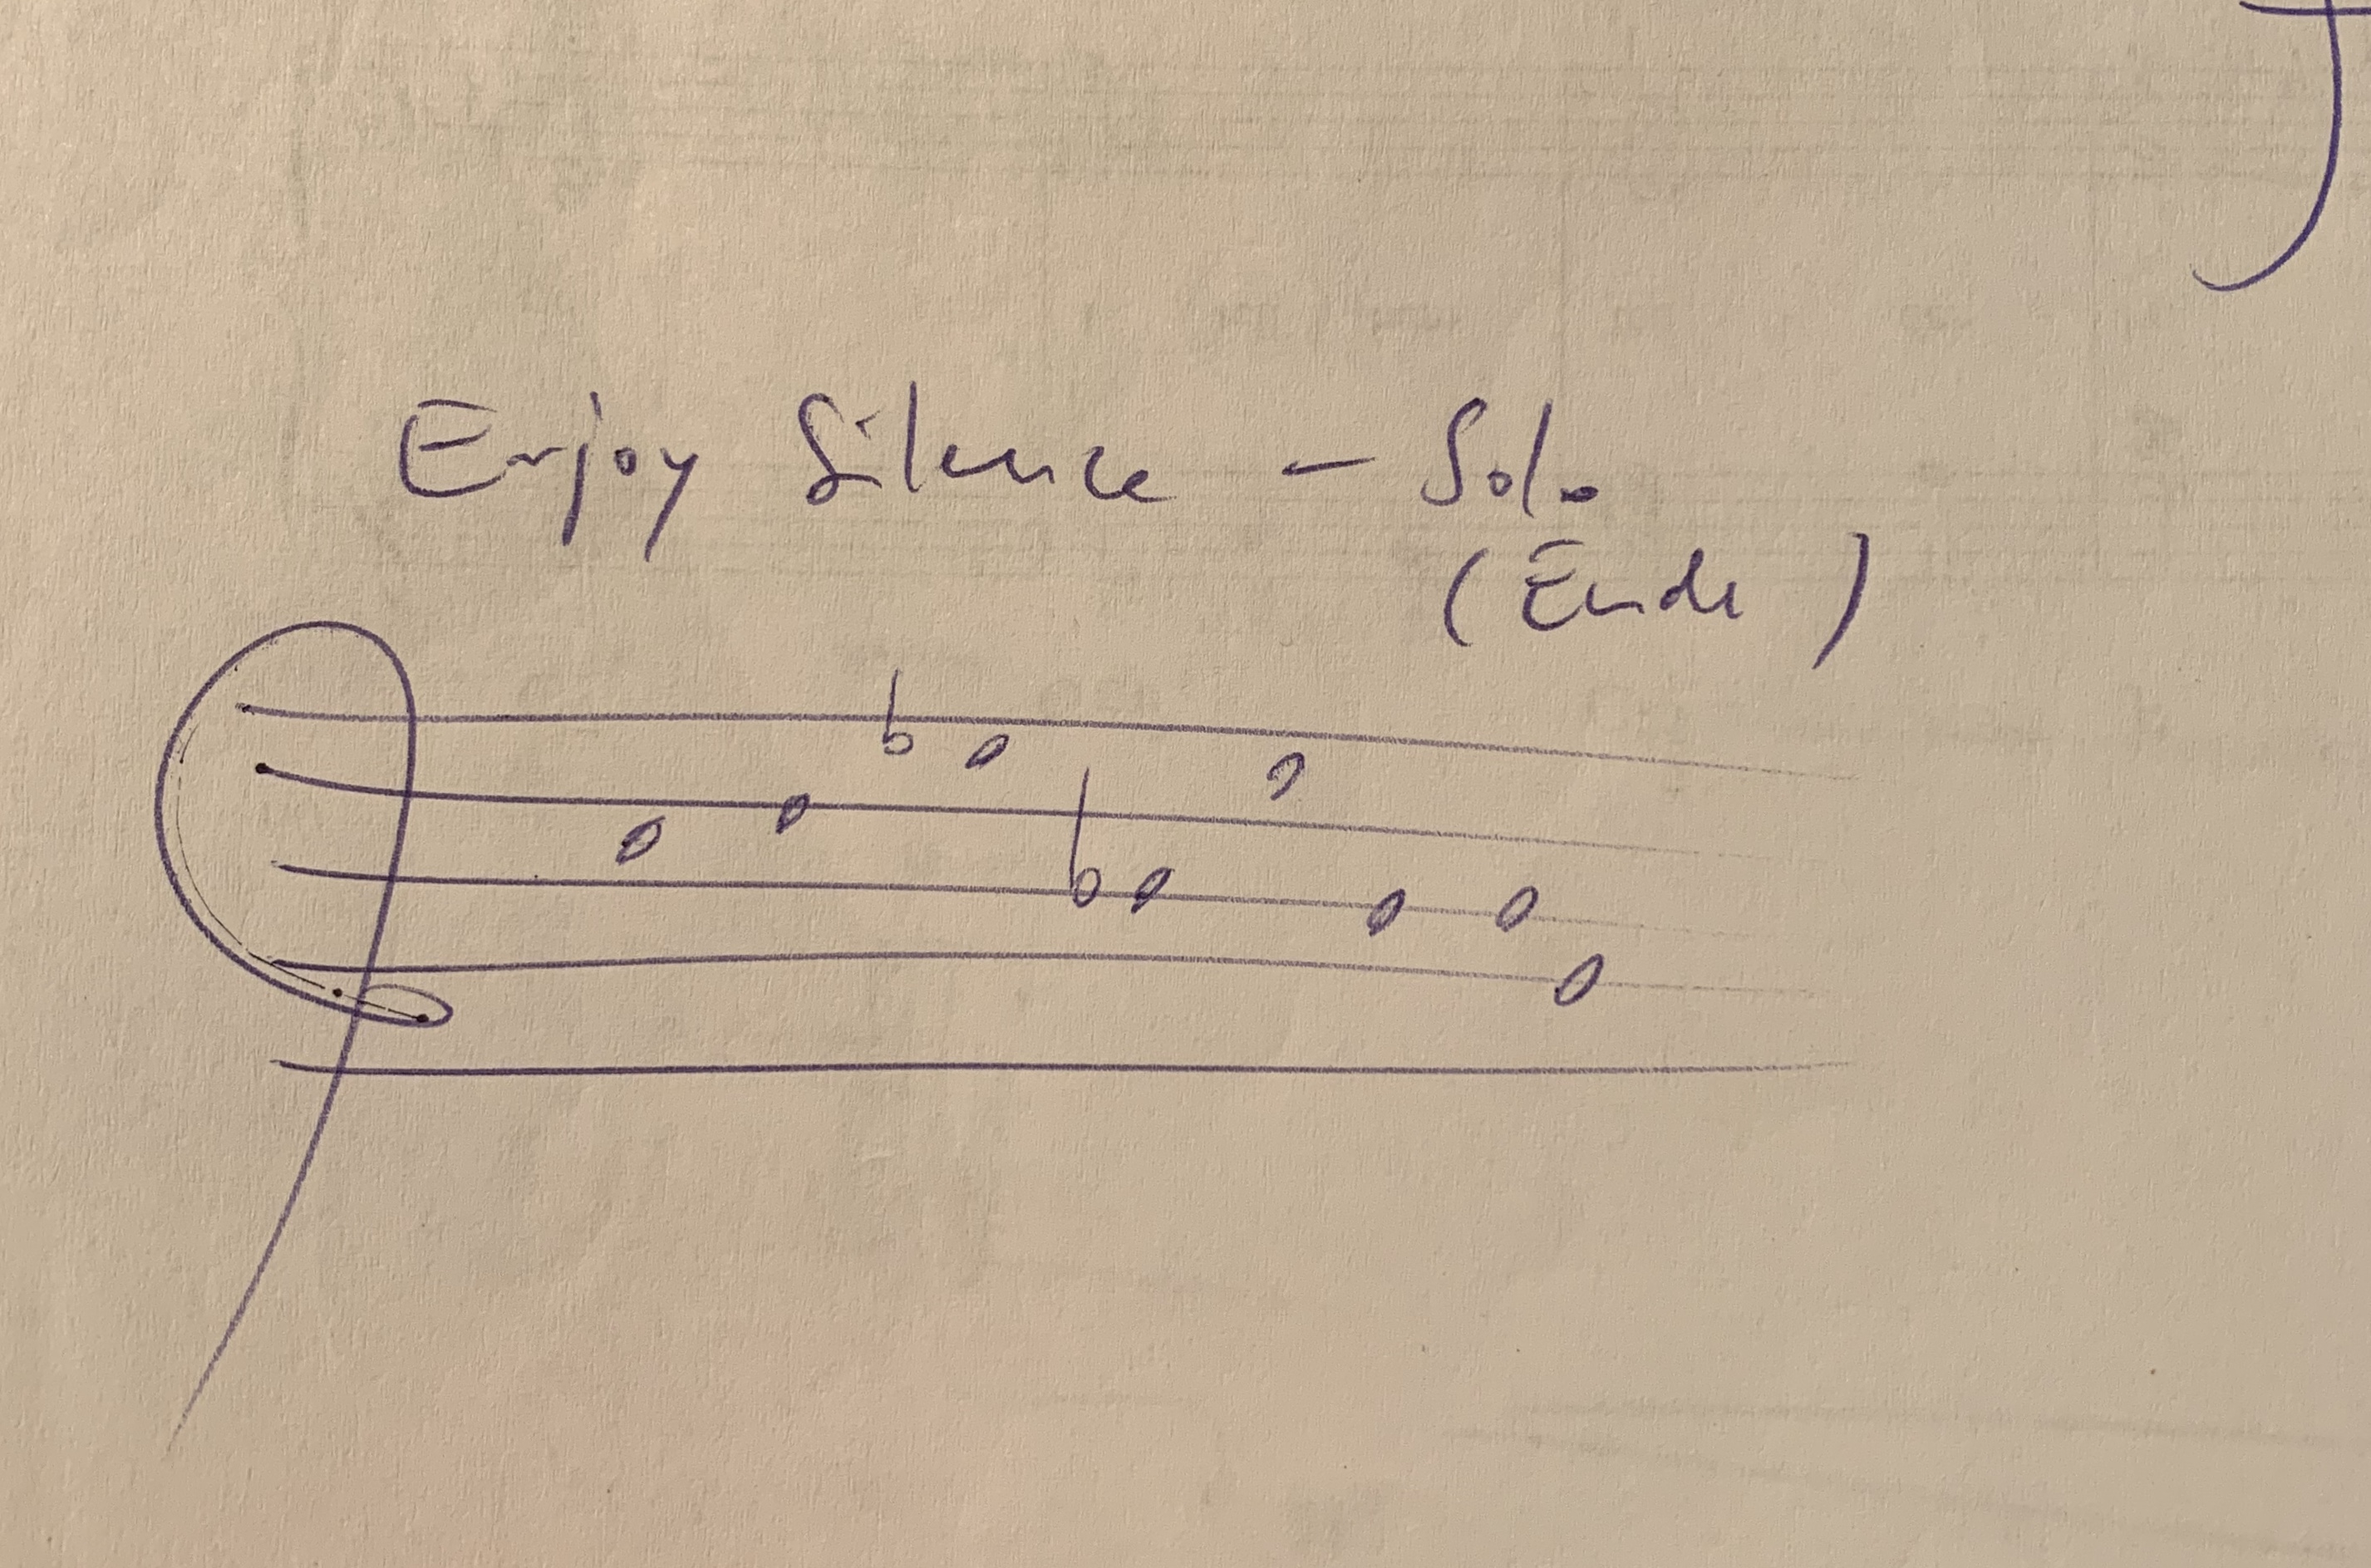 Enjoy Silence – Solo
(Ende)